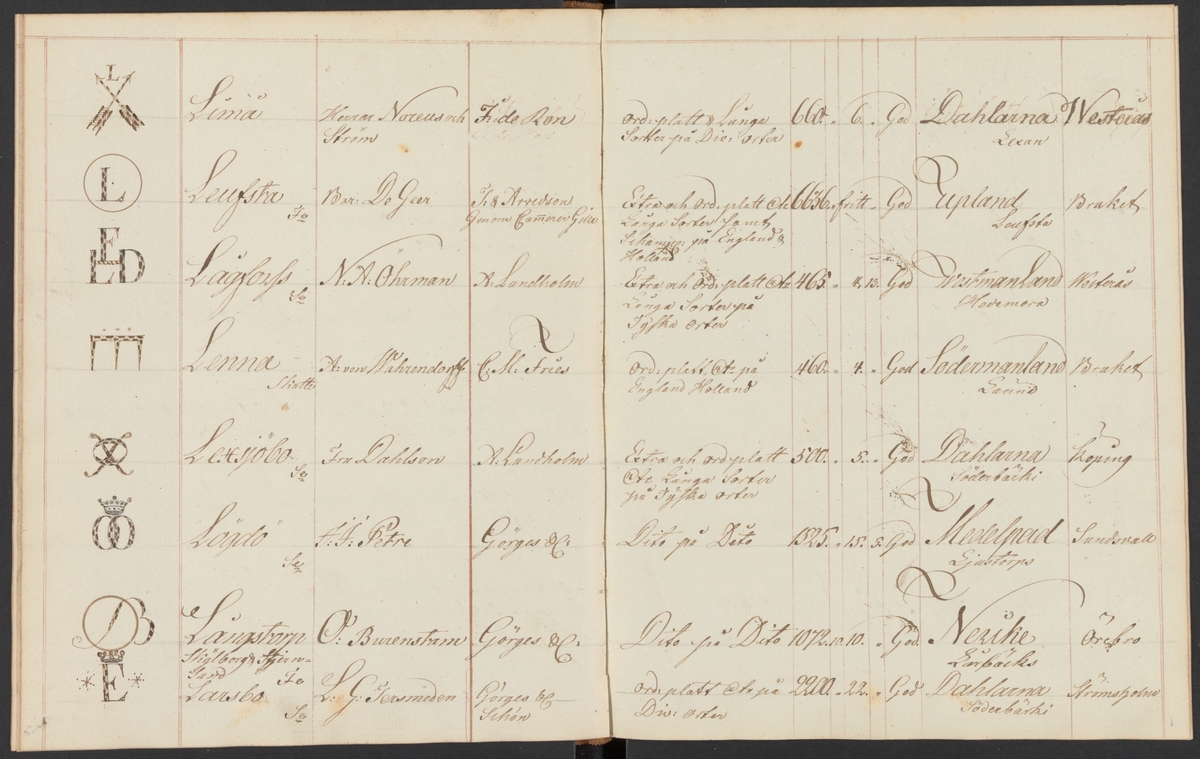 L
Limä
Herrar Noreus och
Ström
F. de Ron
Ord: platt & Långa
Sorter på Div: Orter
660. 6. God Dahlarna Westerås
Lexan
L
Leufsta
Bar: De Geer
F: & Arvedson
Genom Camerer Gilla
Extra och Ord: platt Cte
Långa Sorter samt
på England &
Holland
6636. fritt God Upland Braket
Leufsta
F
LD
Lågforss
So
N. A. Öhrman
A. Lundholm
Extra och Ord: platt Cte
Långa Sorter på
Tyska Orter
465. God Westmanland Westerås
Hedemora
Lenna
A: von Wahrendorff
C: M: Fries
Ord: platt Ct: på
England Holland
460. 4. God Södermanland Braket
Länna
Lexsjöbo
So
Fru Dahlson
A. Lundholm
Extra och Ord: platt
Cte Långa Sorter
på Tyska Orter
500. 5. God Dahlarna Köping
Söderbärki
Lögdö
F: F: Petre
Görges &C:
Dito på Dito
1525. 15. 5. God Medelpad Sundsvall
Ljustorps
B
Långstorp
O: Burenstam
Görges &C:
Dito på Dito
1072. 10. 10. God Nerike Örebro
Lerbäcks
E
Larsbo
So
L. G. Tersmeden
Görges &C
Schön
Ord: platt Ct: på
Div: Orter
2200. 22. God Dahlarna Strömsholm
Söderbärki